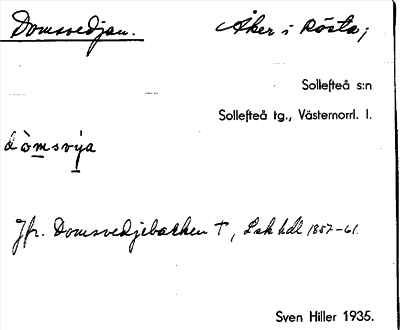 Domsvedjan. Åker i Rösta;
Sollefteå s:n
Sollefteå tg., Västernorrl. l.
dòmsvýa
Jfr. Domsvedjebacken †, Lsk hdl 1857-61.
Sven Hiller 1935.